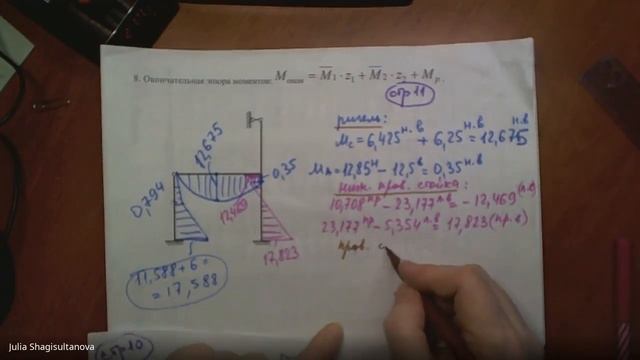 8. Окончательная эпюра моментов: M̅₁ · z₁ + M̅₂ · z₂ + Mₚ.
стр 11
ригель:
Mс = 6,425 н.в + 6,25 н.в = 12,675 н.в
Mп = 12,85 н − 12,5 в = 0,35 н.в
стойка:
10,708 пр − 23,177 = − 12,469
23,177 пр − 5,354 = 17,823 (пр.в)
прав. с
12,675
0,35
0,794
12,469
17,823
11,588 + 6 =
= 17,588
стр 10
Julia Shagisultanova